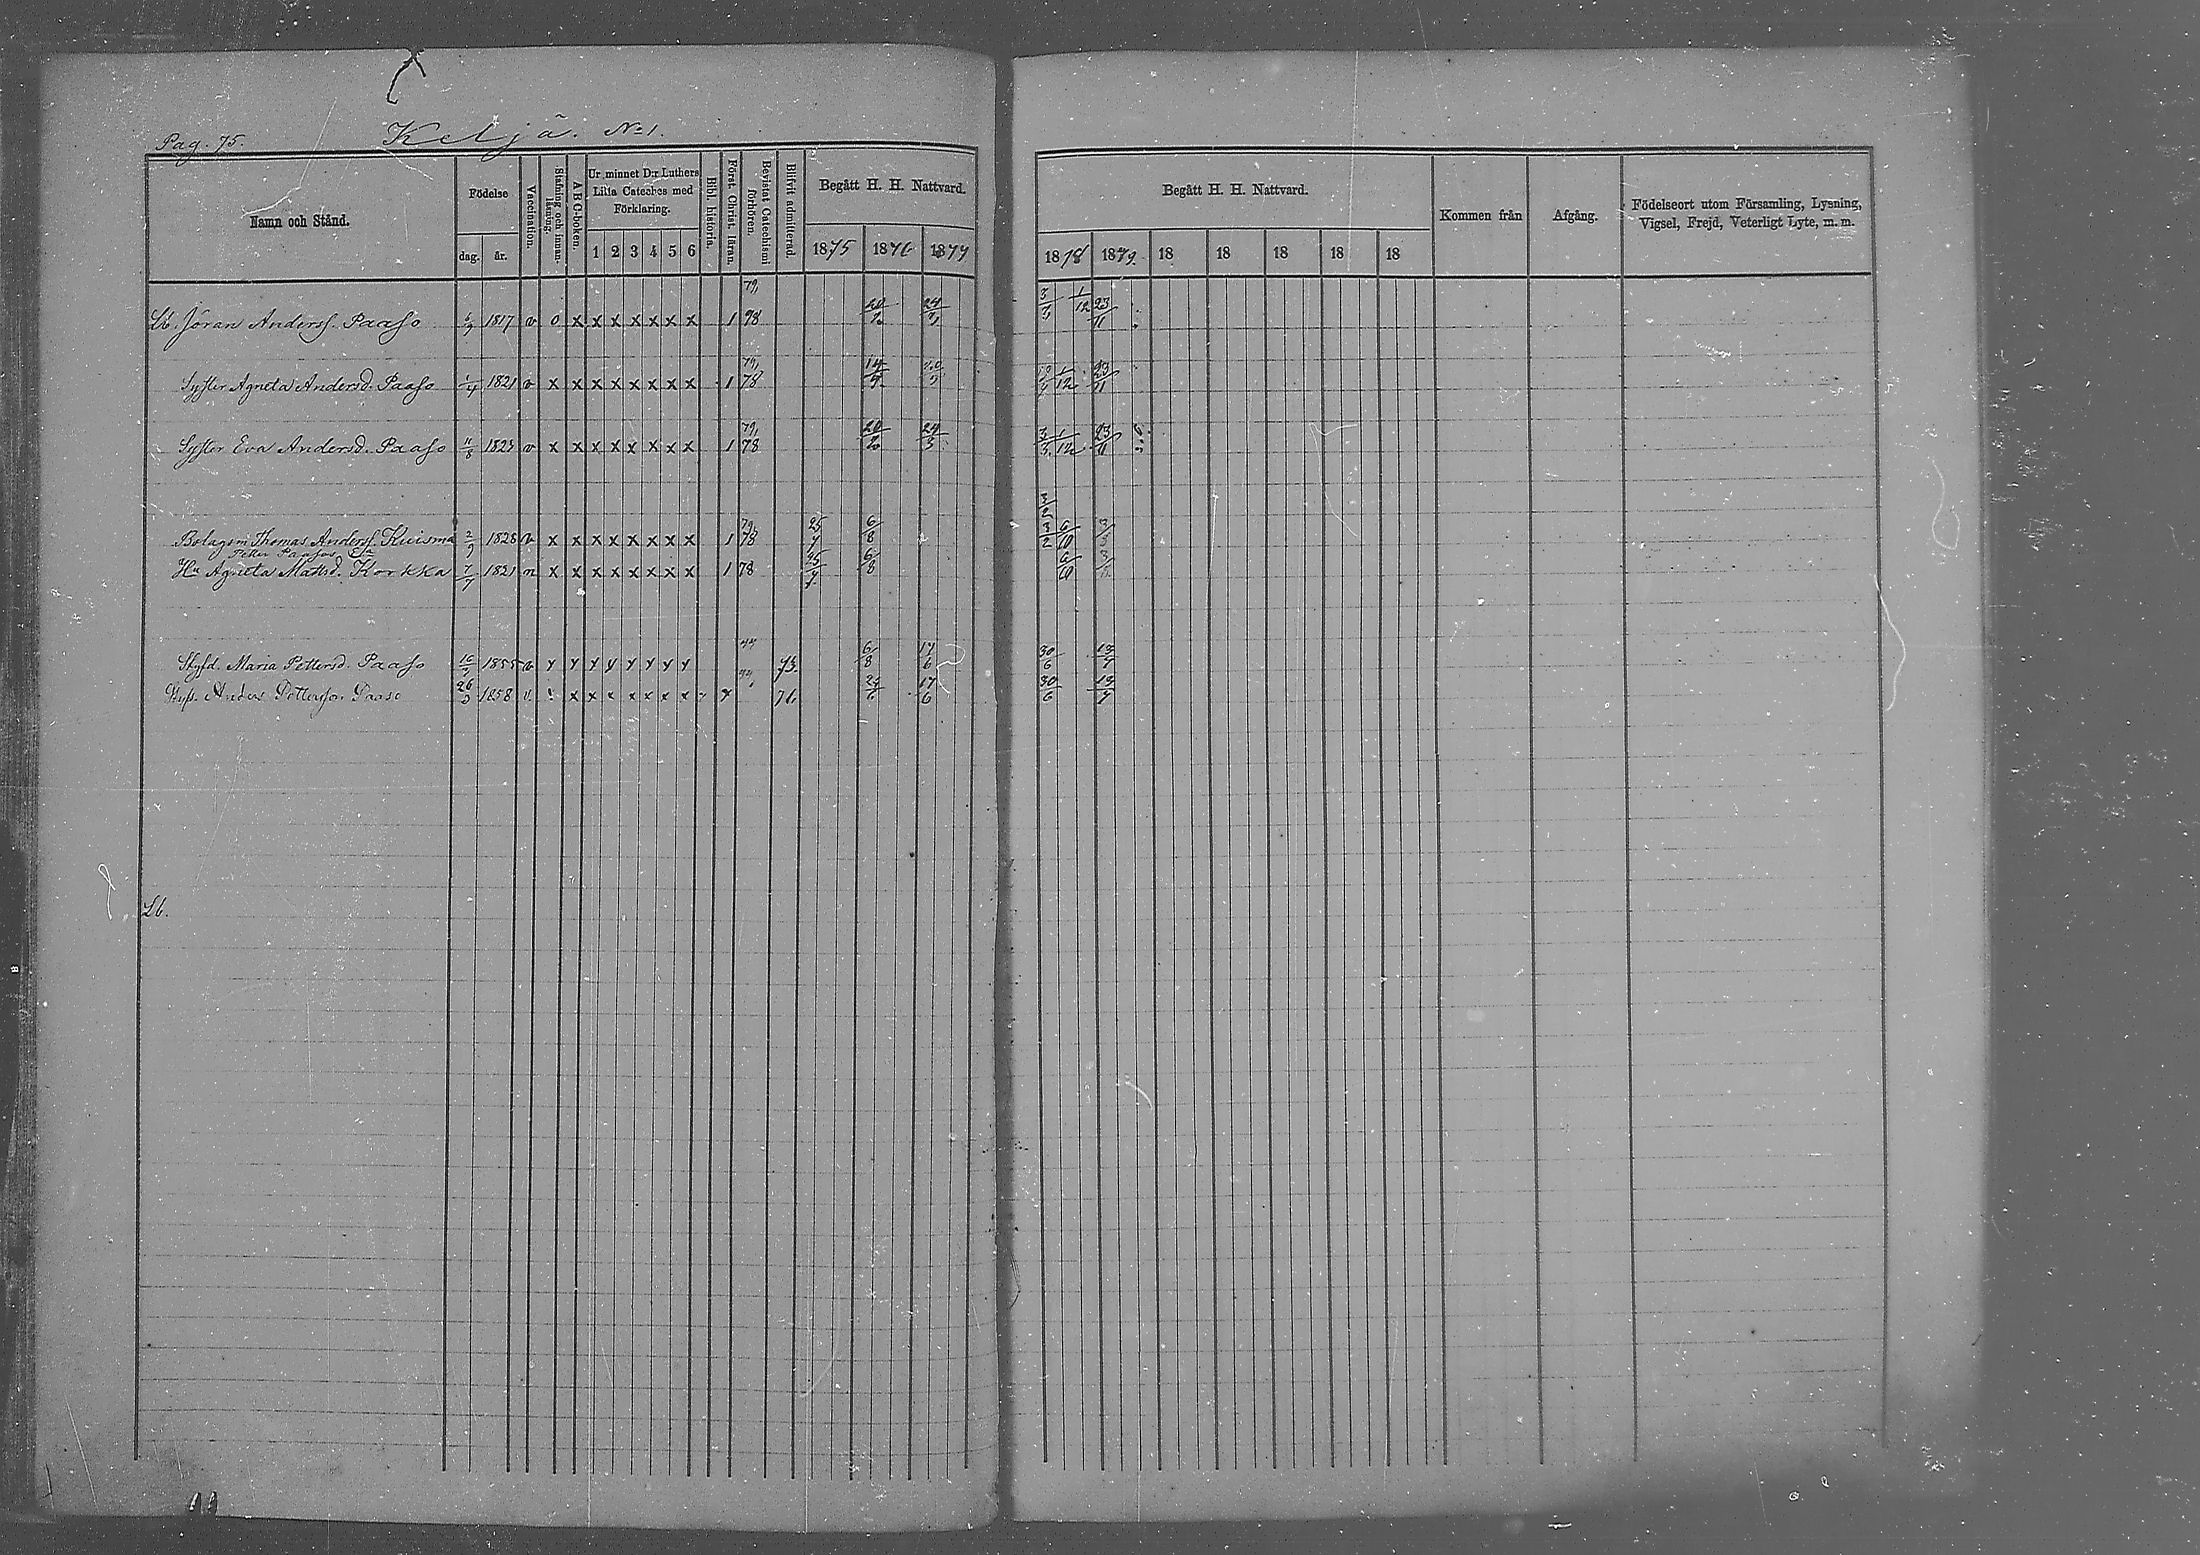 Pag. 75. Keljä. No 1.
Namn och Stånd. Födelse Vaccination. Stafning och innanläsning. A B C-boken. Ur minnet D:r Luthers Lilla Cateches med Förklaring. Bibl. historia. Först. Christ. läran. Bevistat Catechismi förhören. Blifvit admitterad. Begått H. H. Nattvard. Begått H. H. Nattvard. Kommen från Afgång. Födelseort utom Församling, Lysning, Vigsel, Frejd, Veterligt Lyte, m. m.
dag. år. 1 2 3 4 5 6 1875 1876 1877 1878 1879. 18 18 18 18 18
79,
Lb. Jöran Anderss. Paaso 1817 v o x x x x x x x 1 78 20/2 24/3 3/3 1/12 23/11
79,
Syster Agneta Andersd. Paaso 1/4 1821 v x x x x x x x x 1 78 1/12 23/11
79,
Syster Eva Andersd. Paaso 11/8 1823 v x x x x x x x x 1 78 20/2 24/3 3/3 1/12 23/11
3/2
79,
Bolagsm Thomas Anderss. Kuisma 2/9 1828 v x x x x x x x x 1 78 25/7 6/8 3/2 6/10
Petter Paasos Eka
Hu Agneta Mattsd. Korkka 7/7 1821 n x x x x x x x x 1 78 25/7 6/8 6/10
77
Styfd. Maria Pettersd. Paaso 1855 v y y y y y y y y 73. 6/8 17/6 30/6 13/7
Styfs. Anders Pettersson Paaso 26/3 1858 v. x x x x x x x 76. 17/6 30/6 13/7
Lb.